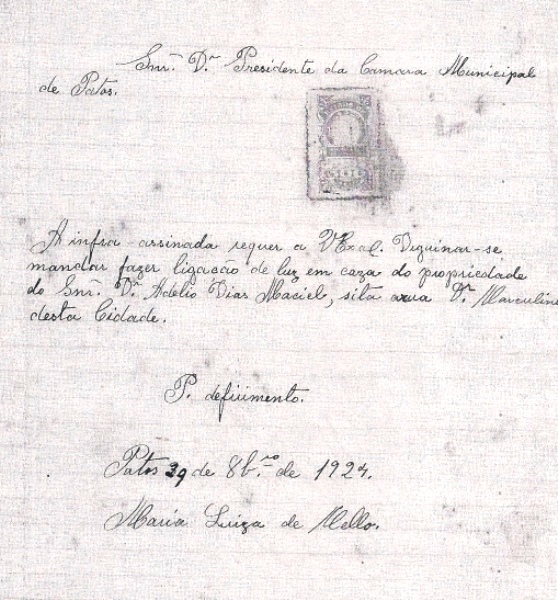 Snr. Dr. Presidente da Camara Municipal
de Patos.
A infra-assinada requer a VExcl. Diguinar-se
mandar fazer ligação de luz em caza do propriedade
do Snr. Dr. Adelio Dias Maciel, sita a rua Dr. Marculino
desta Cidade.
P. defirimento.
Patos 29 de 8b.ro de 1924.
Maria Luiza de Mello.